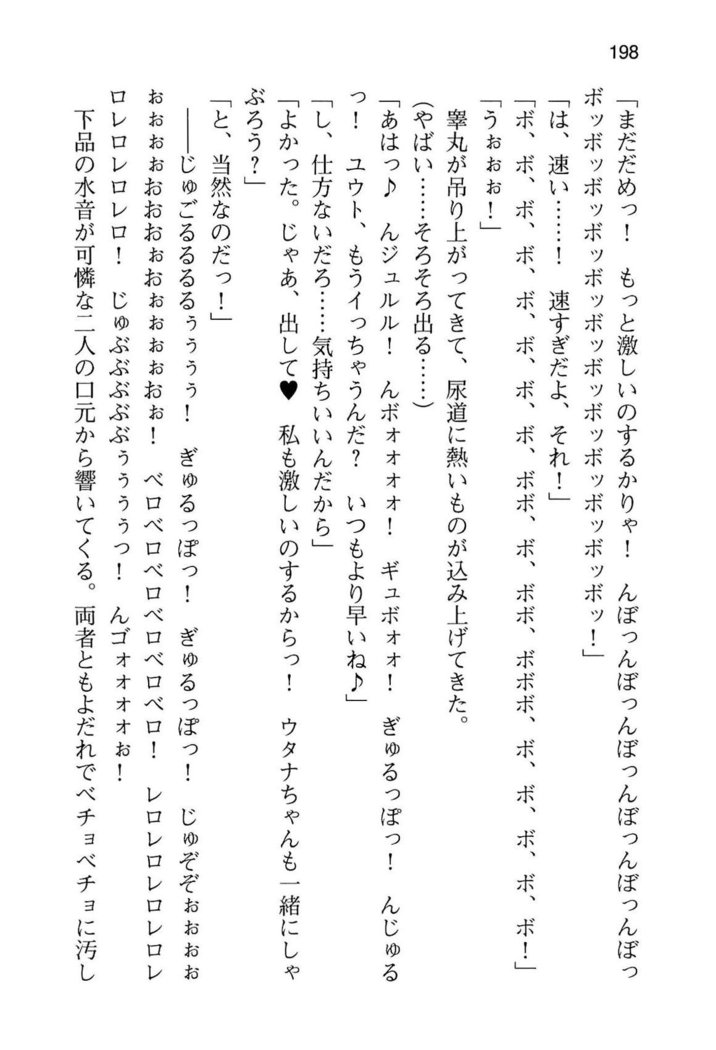 198
「まだだめっ！　もっと激しいのするかりゃ！　んぼっんぼっんぼっんぼっんぼっんぼっ
ボッボッボッボッボッボッボッボッボッボッボッボッ！」
「は、速い……！　速すぎだよ、それ！」
「ボ、ボ、ボ、ボ、ボ、ボ、ボ、ボボ、ボ、ボボ、ボボボ、ボ、ボ、ボ、ボ！」
「うぉぉぉ！」
　睾丸が吊り上がってきて、尿道に熱いものが込み上げてきた。
（やばい……そろそろ出る……）
「あはっ♪　んジュルル！　んボォォォォ！　ギュボォォ！　ぎゅるっぽっ！　んじゅる
っ！　ユウト、もうイっちゃうんだ？　いつもより早いね♪」
「し、仕方ないだろ……気持ちいいんだから」
「よかった。じゃあ、出して♥　私も激しいのするからっ！　ウタナちゃんも一緒にしゃ
ぶろう？」
「と、当然なのだっ！」
　――じゅごるるるるぅぅぅぅ！　ぎゅるっぽっ！　ぎゅるっぽっ！　じゅぞぞぉぉぉぉ
ぉぉぉぉおおおぉおぉぉぉおぉ！　ベロベロベロベロベロ！　レロレロレロレロレ
ロレロレロレロ！　じゅぶぶぶぶぶぅぅぅぅっ！　んゴォォォォぉ！
　下品の水音が可憐な二人の口元から響いてくる。両者ともよだれでベチョベチョに汚し